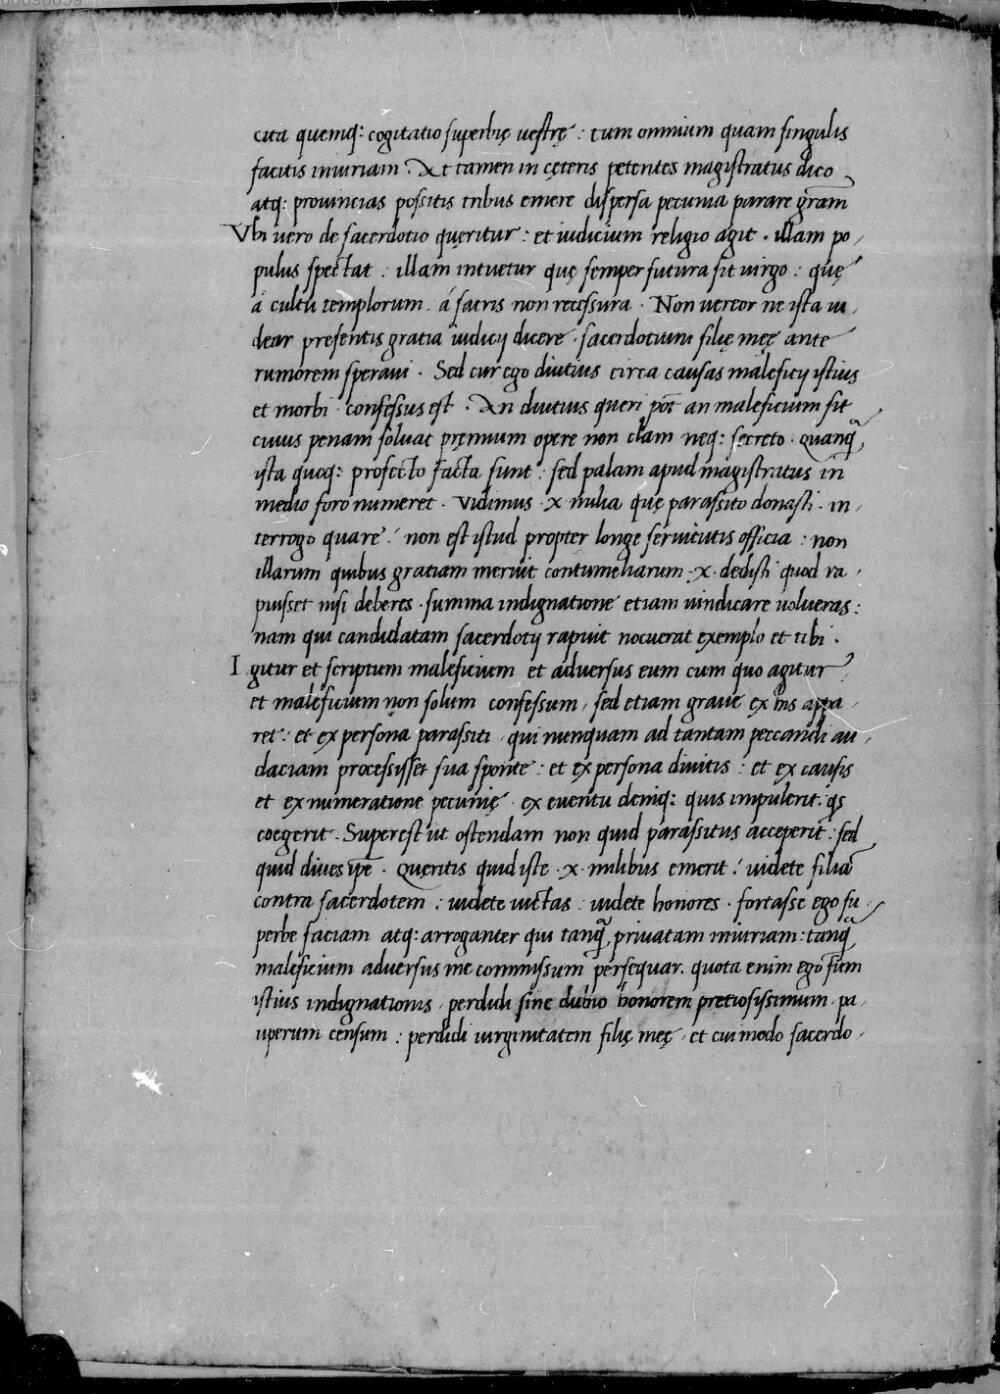 cita quemq: cogitatio superbię uestrę : tum omnium quam singulis
facitis iniuriam . At tamen in cęteris petentes magistratus dico
atq: prouincias possitis tribus emere dispersa pecunia parare gram̄
Vbi uero de sacerdotio quęritur : et iudicium religio agit . illam po
pulus spectat . illam intuetur quę semper futura sit uirgo : quę
a cultu templorum . á sacris non recessura . Non uereor ne ista ui
dear presentis gratia iudicij dicere . sacerdotium filię męę ante
rumorem speraui . Sed cur ego diutius circa causas maleficij istius
et morbi . confessus est . An diutius queri pōt an maleficium sit
cuius penam soluat pręmium opere non clam neq: secreto . Quanq̃
ista quoq: profecto facta sunt : sed palam apud magistratus in
medio foro numeret . Vidimus . x milia quę parassito donasti . in
terrogo quare ? non est istud propter longe seruitutis officia : non
illarum quibus gratiam meruit contumeliarum . x . dedisti quod ra
puisset nisi deberes . summa indignatione etiam uindicare uolueras :
nam qui candidatam sacerdotij rapuit nocuerat exemplo et tibi .
Igitur et scriptum maleficium et aduersus eum cum quo agitur
et maleficium non solum confessum , sed etiam graue ex his appa
ret : et ex persona parassiti . qui nunquam ad tantam peccandi au
daciam processisset sua sponte : et ex persona diuitis : et ex causis
et ex numeratione pecunię . ex euentu deniq: quis impulerit . q̄s
coegerit . Superest ut ostendam non quid parassitus acceperit : sed
quid diues ip̄e . Queritis quid iste . x . milibus emerit ? uidete filiā
contra sacerdotem : uidete uictas : uidete honores . fortasse ego su
perbe faciam atq: arroganter qui tanq̃ priuatam iniuriam : tanq̃
maleficium aduersus me commissum persequar . quota enim ego sum
istius indignationis . perdidi sine dubio honorem pretiosissimum . pa
uperum censum : perdidi uirginitatem filię męę . et cui modo sacerdo